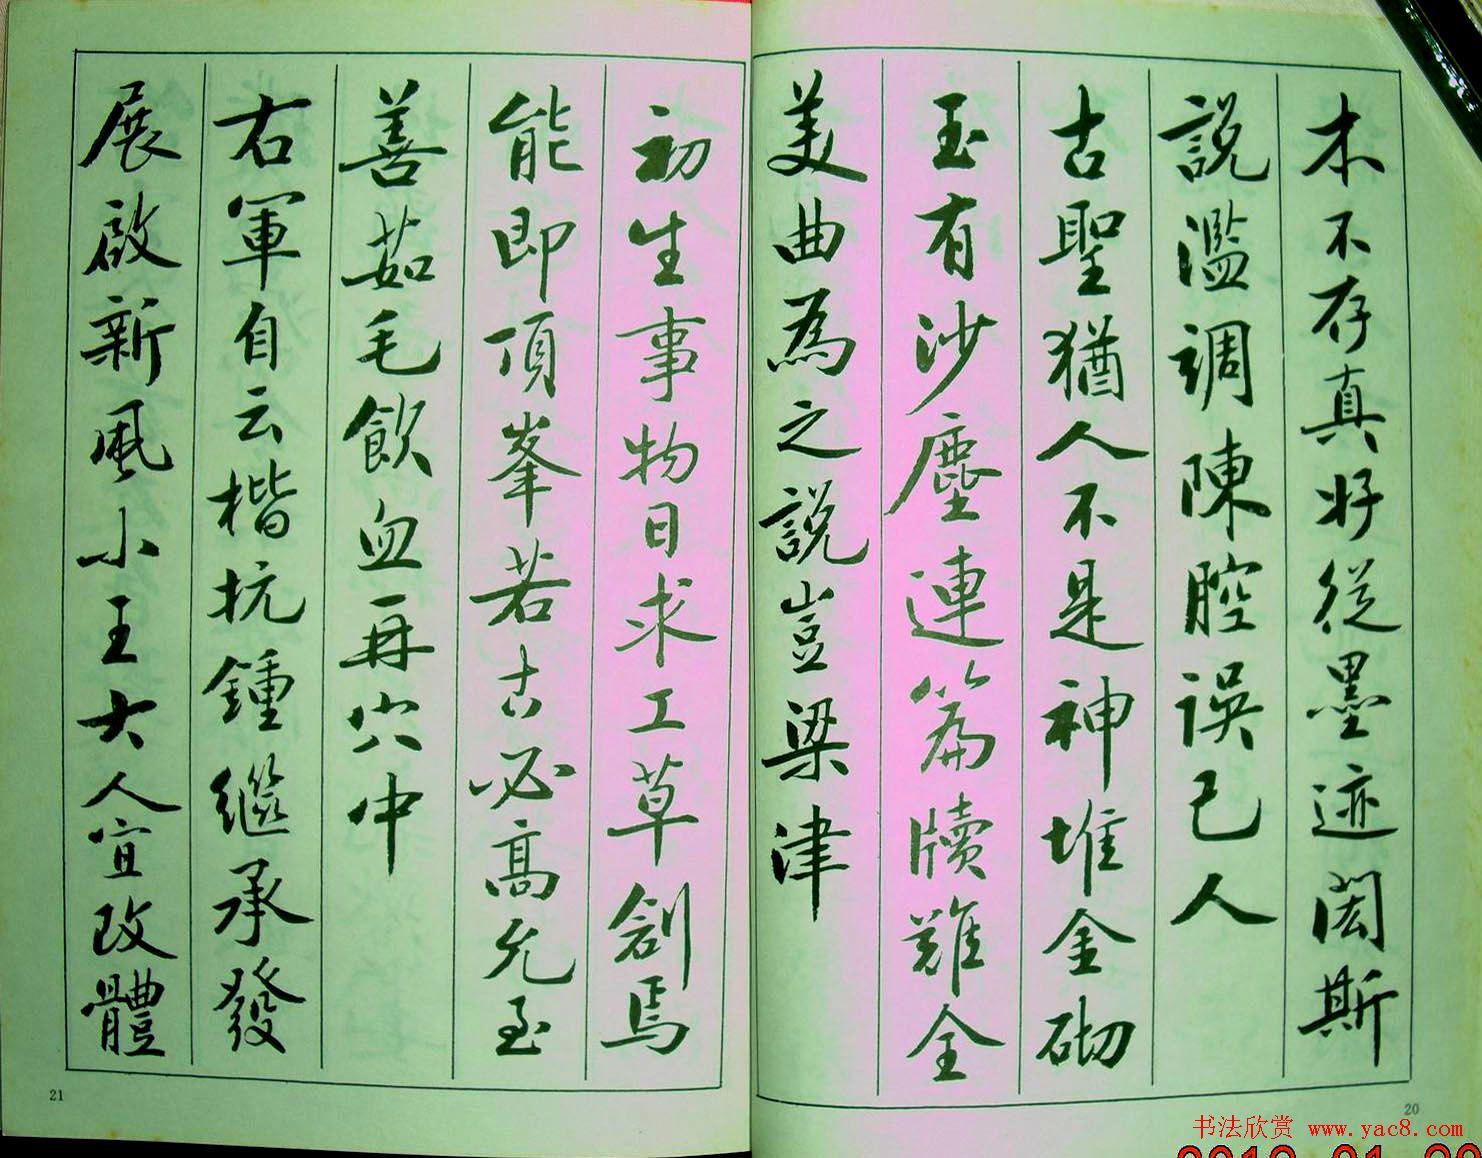 本不存真好從墨迹閎斯
說濫調陳腔誤己人
古聖猶人不是神堆金砌
玉有沙塵連篇牘難全
美曲為之說豈梁津
初生事物日求工草創焉
能即頂峯若古必高允至
善茹毛飲血再穴中
右軍自云楷抗鍾繼承發
展啟新風小王大人宜改體
21
20
书法欣赏 www.yac8.com